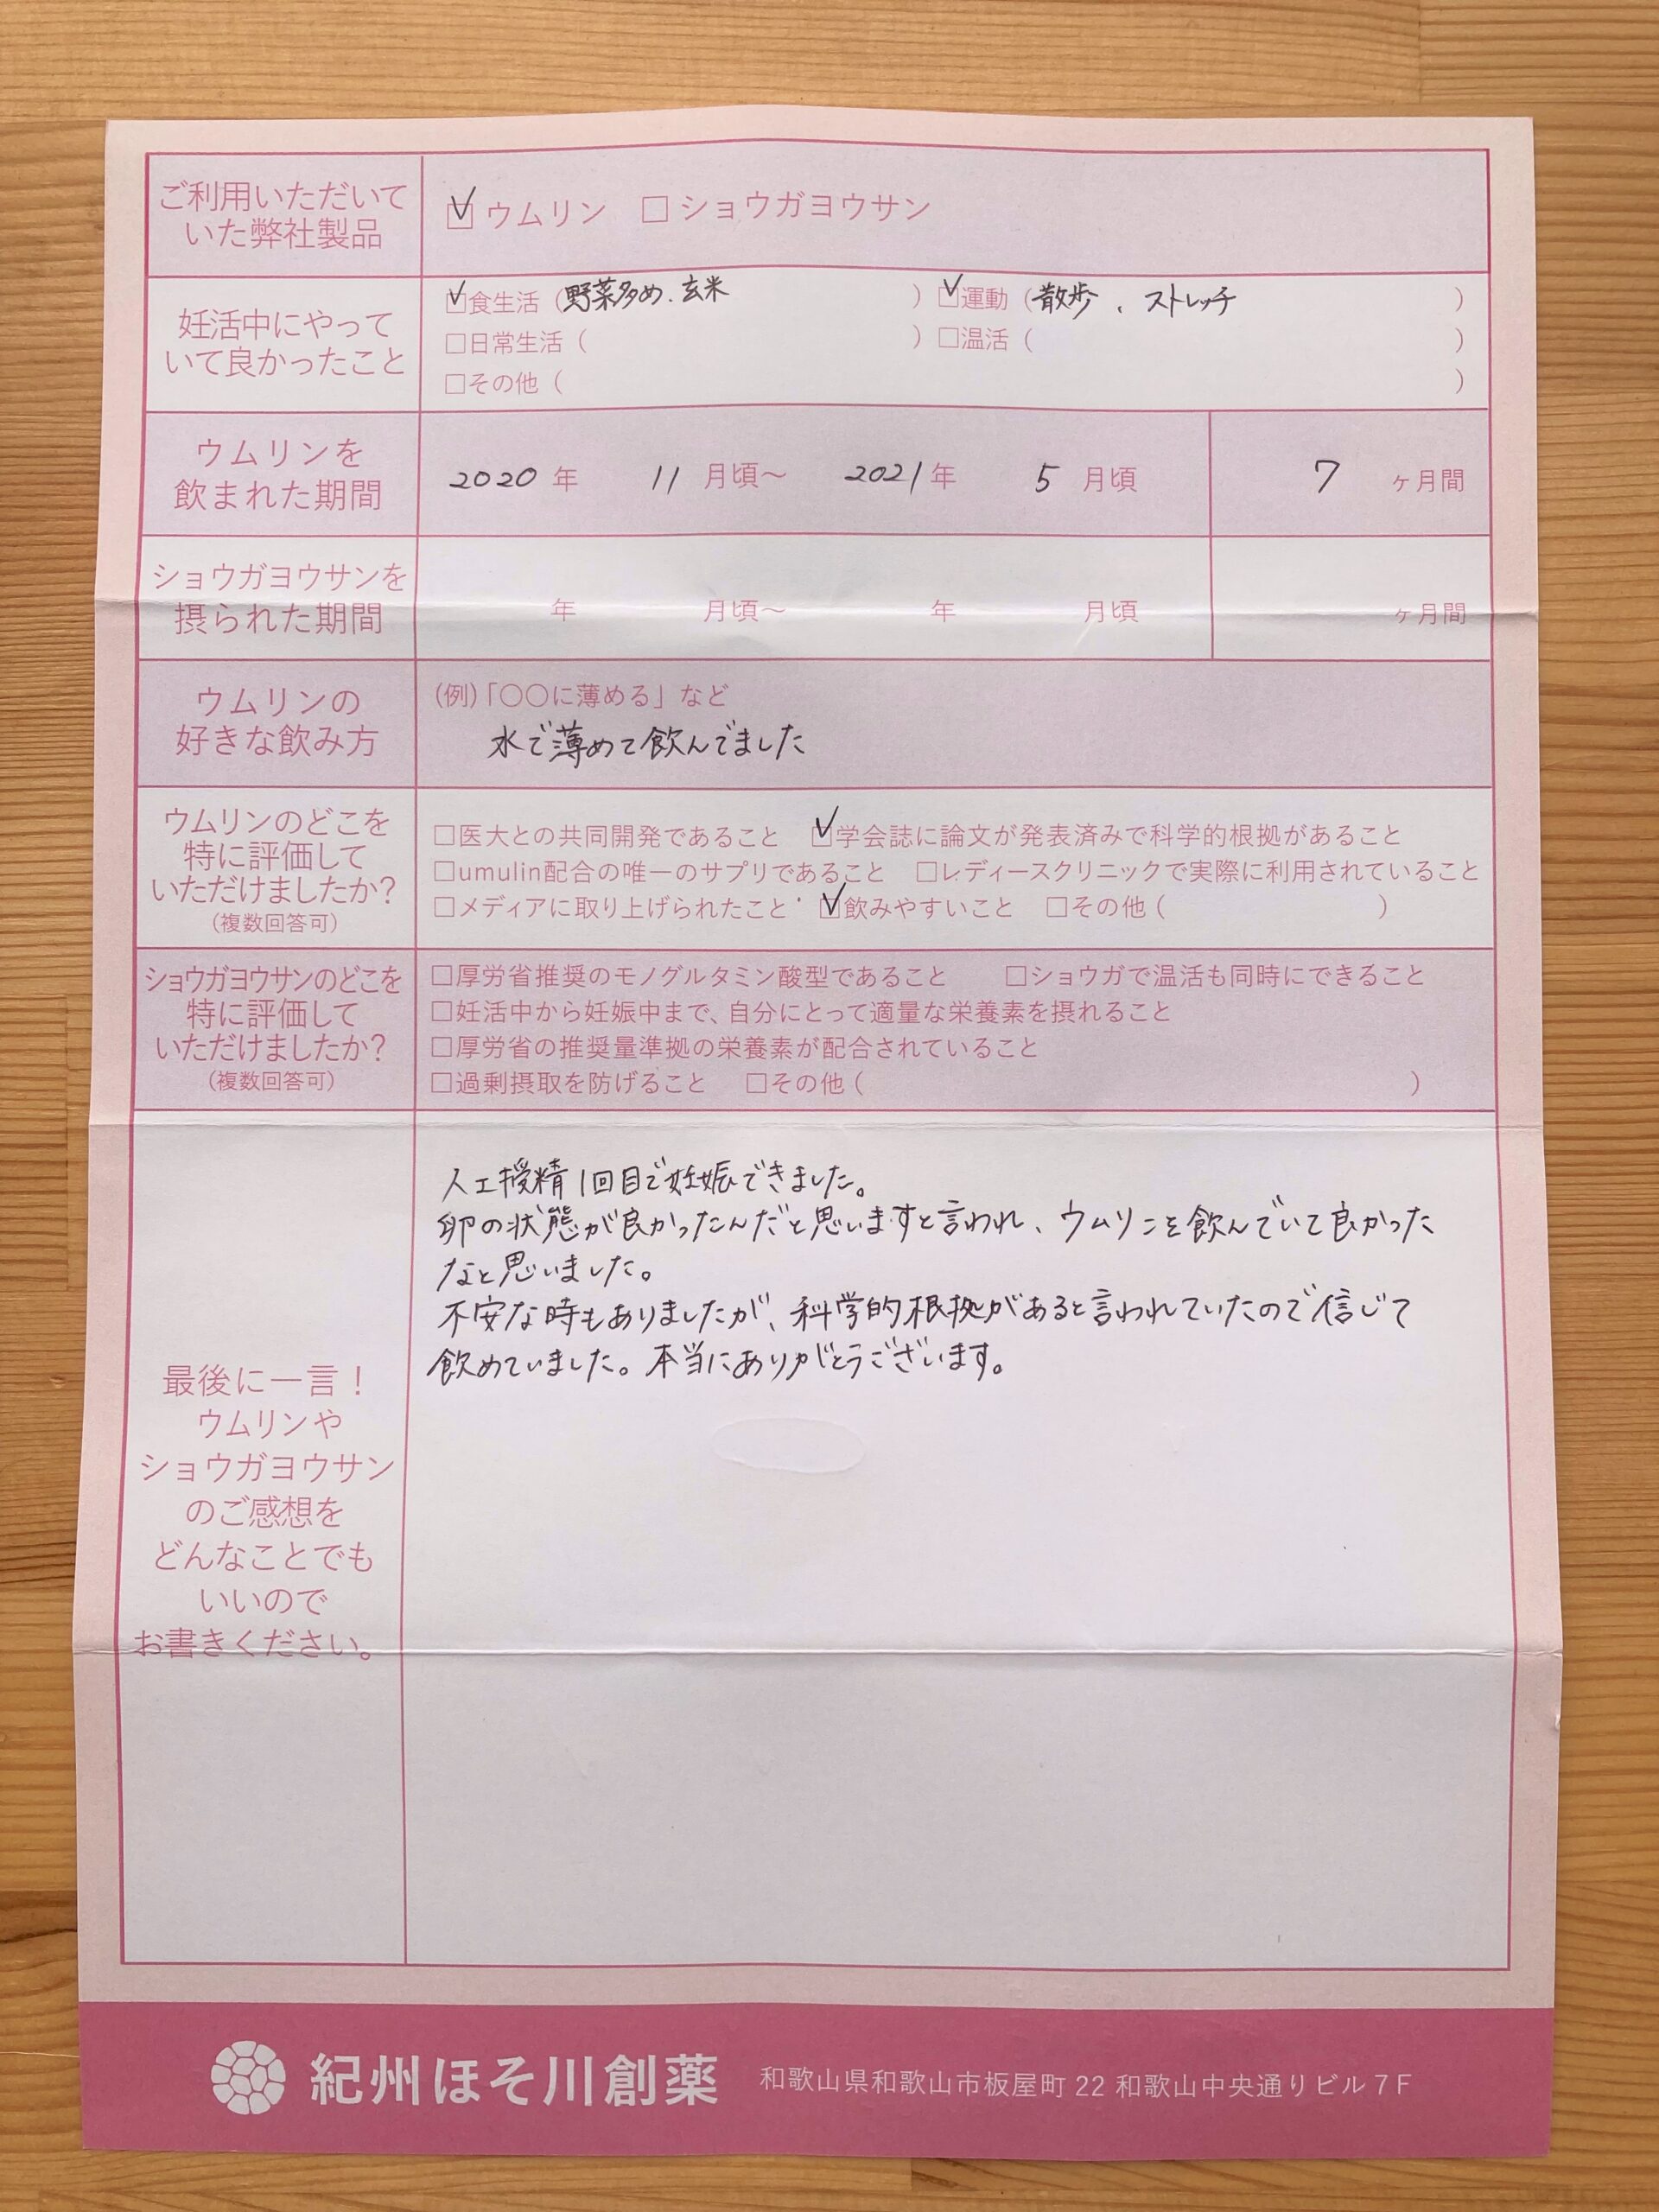 ご利用いただいて
いた弊社製品
☑ウムリン □ショウガヨウサン
妊活中にやって
いて良かったこと
☑食生活（野菜多め、玄米） ☑運動（散歩、ストレッチ）
□日常生活（ ） □温活（ ）
□その他（ ）
ウムリンを
飲まれた期間
2020年 11月頃〜 2021年 5月頃 7ヶ月間
ショウガヨウサンを
摂られた期間
年 月頃〜 年 月頃 ヶ月間
ウムリンの
好きな飲み方
(例)「〇〇に薄める」など
水で薄めて飲んでました
ウムリンのどこを
特に評価して
いただけましたか？
(複数回答可)
□医大との共同開発であること ☑学会誌に論文が発表済みで科学的根拠があること
□umulin配合の唯一のサプリであること □レディースクリニックで実際に利用されていること
□メディアに取り上げられたこと ☑飲みやすいこと □その他（ ）
ショウガヨウサンのどこを
特に評価して
いただけましたか？
(複数回答可)
□厚労省推奨のモノグルタミン酸型であること □ショウガで温活も同時にできること
□妊活中から妊娠中まで、自分にとって適量な栄養素を摂れること
□厚労省の推奨量準拠の栄養素が配合されていること
□過剰摂取を防げること □その他（ ）
最後に一言！
ウムリンや
ショウガヨウサン
のご感想を
どんなことでも
いいので
お書きください。
人工授精1回目で妊娠できました。
卵の状態が良かったんだと思いますと言われ、ウムリンを飲んでいて良かった
なと思いました。
不安な時もありましたが、科学的根拠があると言われていたので信じて
飲めていました。本当にありがとうございます。
紀州ほそ川創薬 和歌山県和歌山市板屋町22 和歌山中央通りビル7F